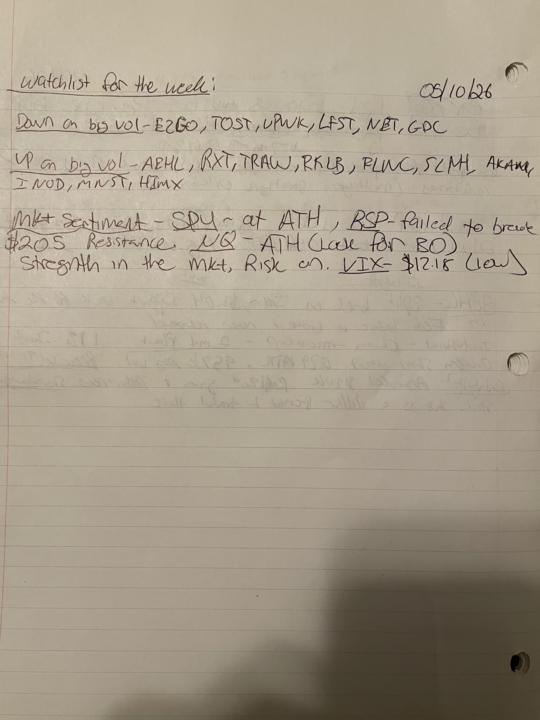 Watchlist for the week:
05/10/26
Down on big vol - EZGO, TOST, UPWK, LFST, NET, GDC
UP on big vol - AEHL, RXT, TRAW, RKLB, FLNC, SLMH, AKAM,
INOD, MNST, HIMX
Mkt Sentiment - SPY - at ATH, RSP - failed to break
$205 Resistance. NQ - ATH (Look for BO)
Stregnth in the mkt, Risk on. VIX - $17.18 (low)